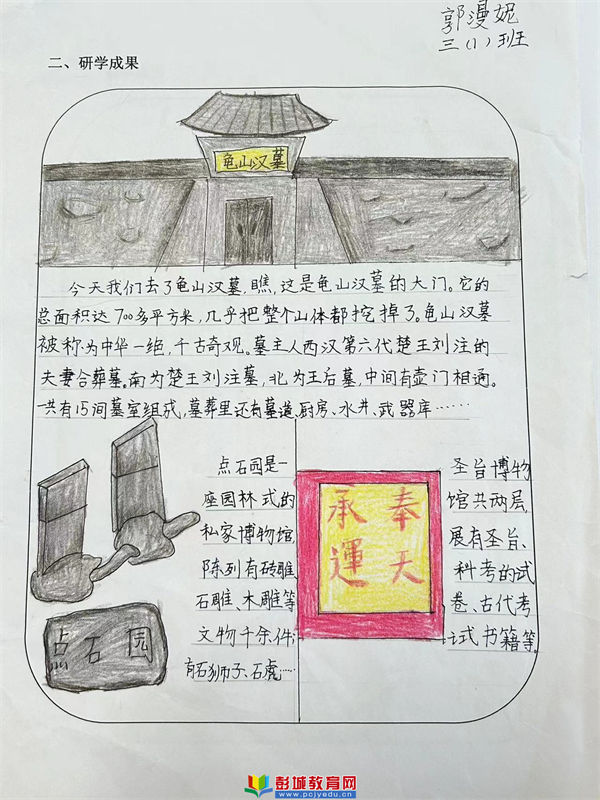 郭漫妮
三(1)班
二、研学成果
龟山汉墓
今天我们去了龟山汉墓,瞧,这是龟山汉墓的大门。它的
总面积达700多平方米,几乎把整个山体都挖掉了。龟山汉墓
被称为中华一绝,千古奇观。墓主人西汉第六代楚王刘注的
夫妻合葬墓。南为楚王刘注墓,北为王后墓,中间有壶门相通。
一共有15间墓室组成,墓葬里还有墓道、厨房、水井、武器库……
点石园是一
座园林式的
私家博物馆,
陈列有砖雕、
石雕、木雕等
文物千余件;
有石狮子、石虎…
点石园
奉天
承運
圣旨博物
馆共两层,
展有圣旨、
科考的试
卷、古代考
试书籍等。
彭城教育网
www.pcjyedu.cn